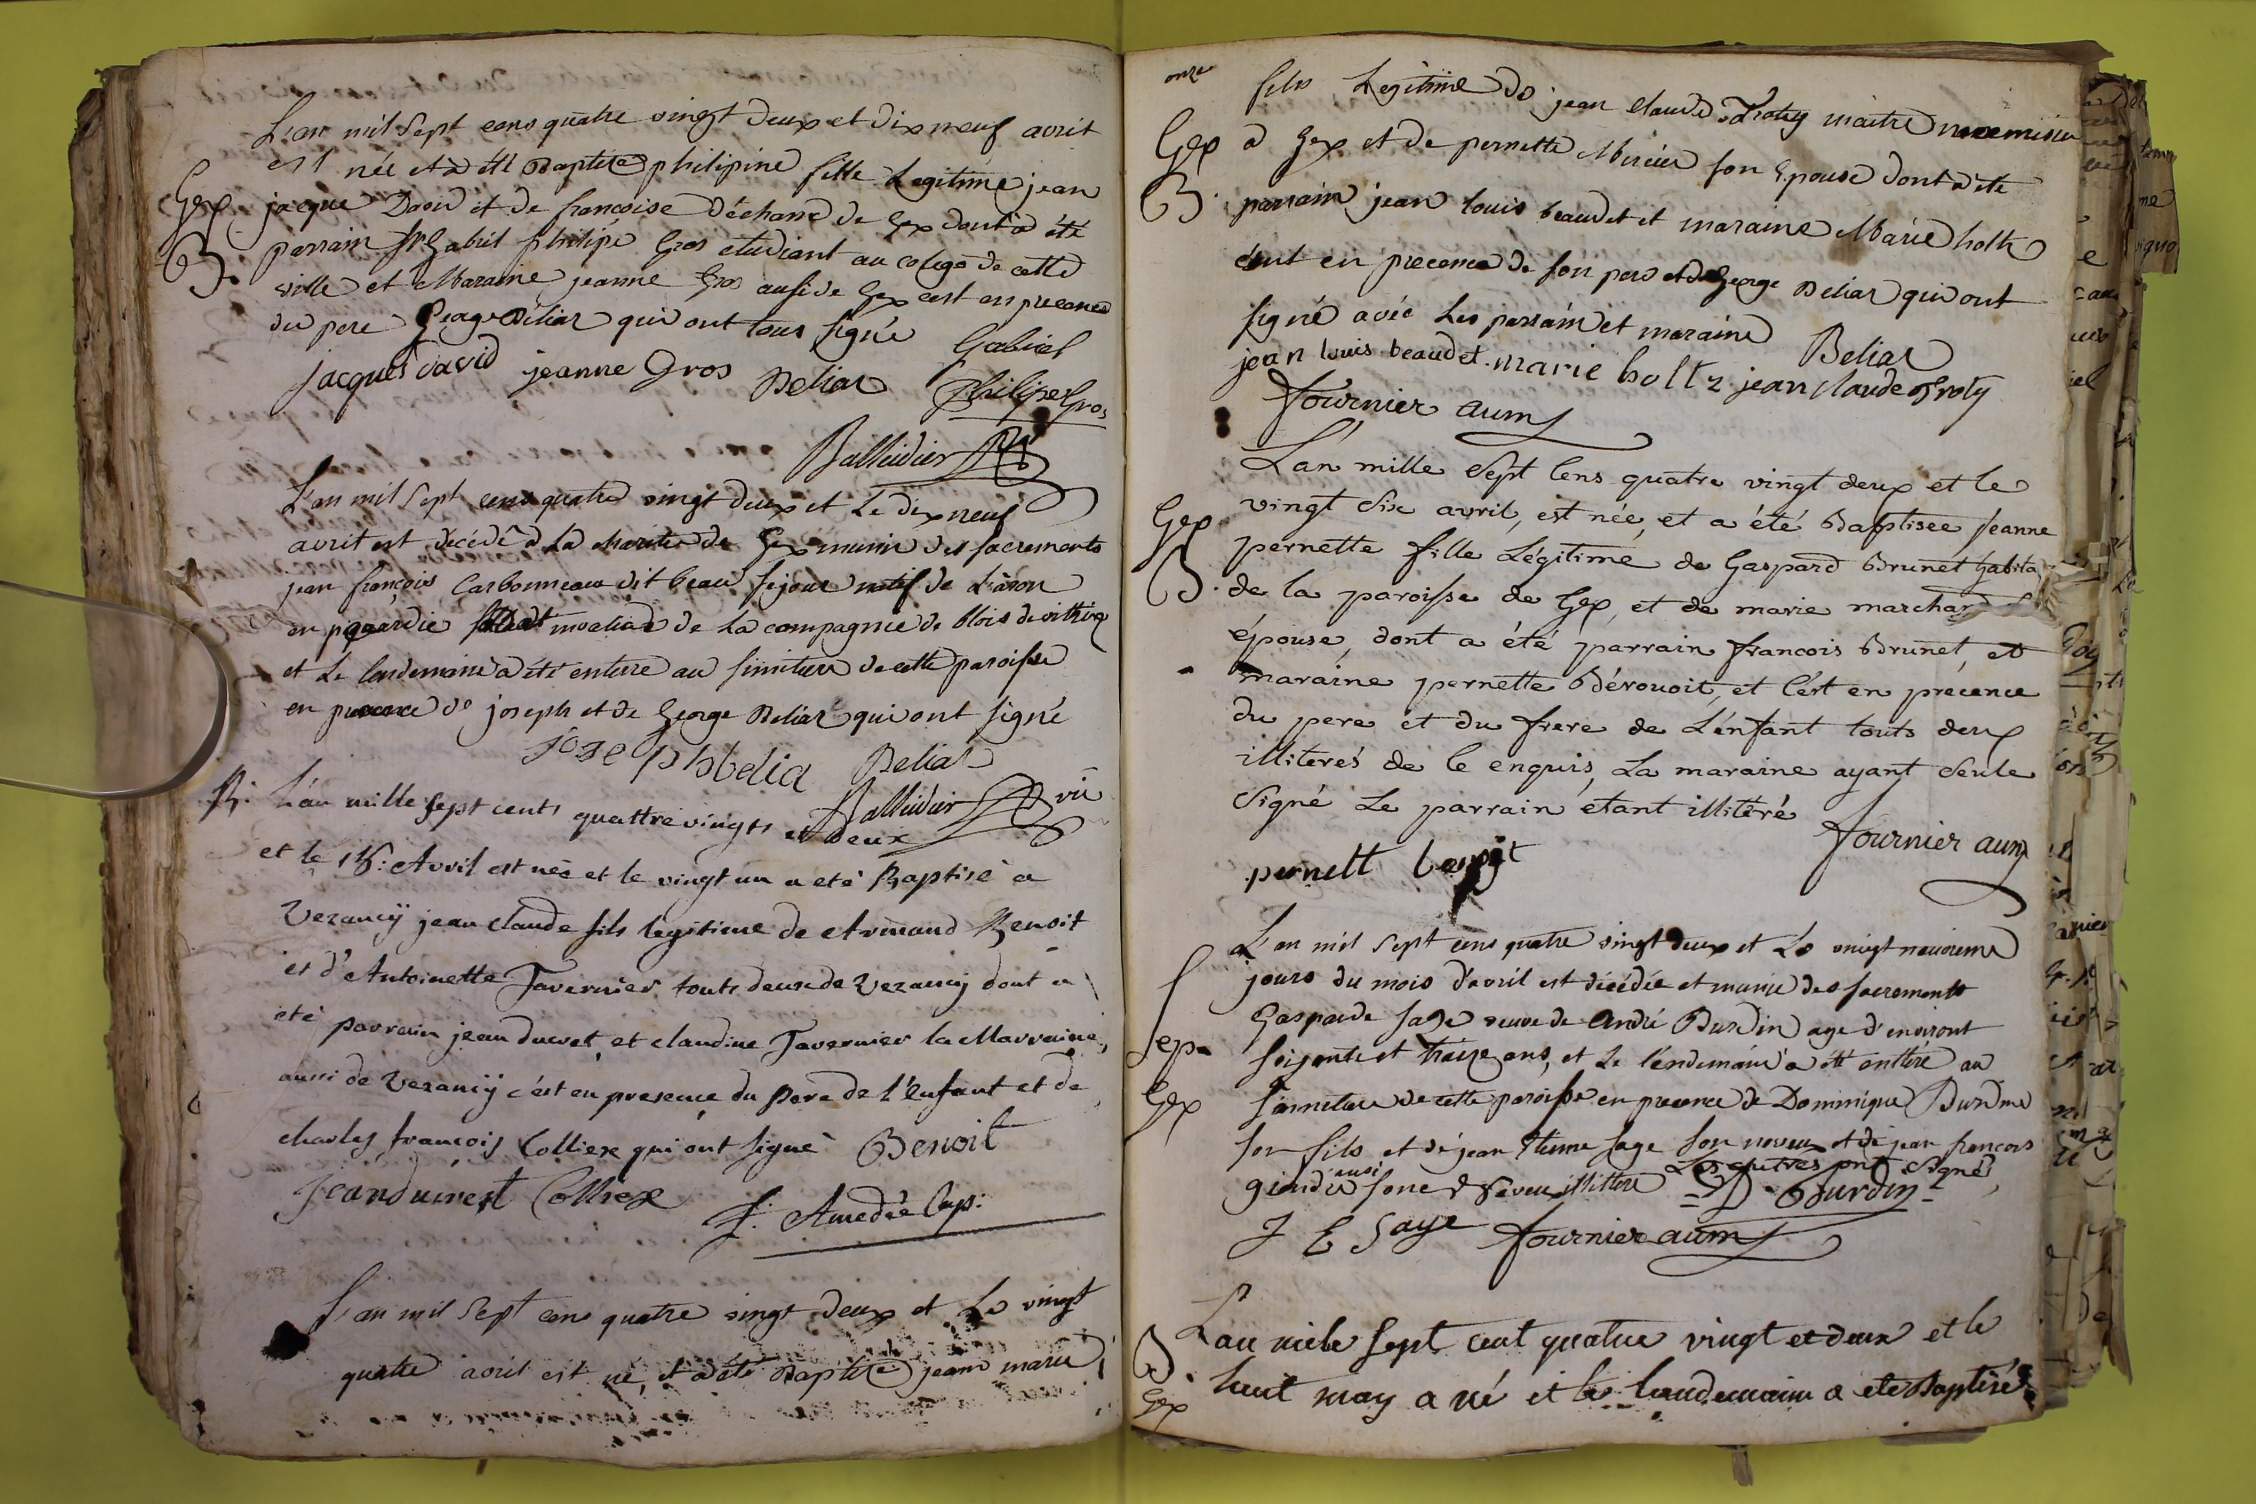 L'an mil sept cens quatre vingt deux et dix neuf avril
est née et a été Baptisée philipine fille Legitime jean
Gex jacque David et de françoise déchame de Gex dont a été
B. parrain Sr Gabriel philipe Gros etudiant au colege de cette
ville et Maraine jeanne Gros ausi de Gex c'est en precence
du pere George Béliar qui ont tous signé
Gabriel
jacques david jeanne Gros Beliar philipe Gros
Balleidier
L'an mil sept cens quatre vingt deux et Le dix neuf
avril est décédé a La charité de Gex munir des sacrements
jean françois Carbonneau dit beau sejour natif de
en picardie soldat invalide de La compagnie de blois de
et Le lendemain a été enterré au simitiere de cette paroisse
en precence de joseph et de George Beliar qui ont signé
josephbelia Beliar
Balleidier vic
B. L'an mille sept cents quattre vingts et deux
et le Avril est née et le vingt un a eté Baptisé a
Vezancÿ jean claude fils legitime de Armand Benoit
et d'Antoinette Tavernier touts deux de Vezancÿ dont a
eté parrain jean ducret, et claudine Tavernier la Marraine,
aussi de Vezancÿ c'est en presence du Pere de l'enfant et de
charles françois Colliex qui ont signé Benoit
Jeanducrest Colliex
f. Amedée Cap:
L'an mil sept cens quatre vingt deux et Le vingt
quatre avril est né, et a été Baptisé jean marie
onze
fils Legitime de jean claude Groty maitre
Gex a Gex et de pernette Mercier son Epouse dont a été
B. parrain jean louis beaudet et maraine Marie holtz
c'eut en precence de son pere et de George Beliar qui ont
signé avec Les parrain et maraine Beliar
jean louis beaudet marie holtz jean claude Groty
fournier aum
L'an mille Sept Cens quatre vingt deux et le
Gex vingt Six avril, est née, et a été Baptisée jeanne
pernette fille Légitime de Gaspard Brunet habita
B. de la paroisse de Gex, et de marie marchand
épouse, dont a été parrain francois Brunet, et
maraine pernette Bérouoit, et c'est en precence
du pere et du frere de L'enfant touts deux
illiterés de ce enquis, La maraine ayant Seule
Signé Le parrain étant illitéré
fournier aum
pernett
L'an mil sept cens quatre vingt deux et Le vingt neuvieme
jours du mois d'avril est décédée et munie des sacrements
Gasparde sage veuve de André Burdin age d'environt
sep. soixante et traize ans, et Le l'endemain a été entéré au
Gex simitiere de cette paroisse en precence de Dominique Burdin
son fils et de jean Etiene sage son neveu et de jean francois
aussi son neveu illitéré Les autres ont signé,
D. Burdin
J E Sage fournier aum
L'an mile sept cent quatre vingt et deux et le
B. Gex huit may a né et le landemain a ete Baptisé